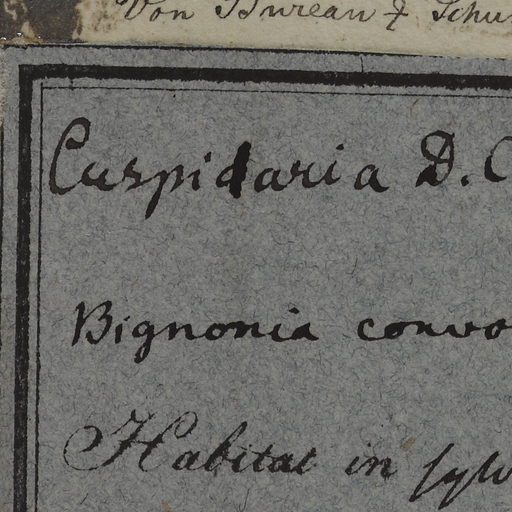 Von Bureau & Schu
Cuspidaria D. C
Bignonia convo
Habitat in sylv